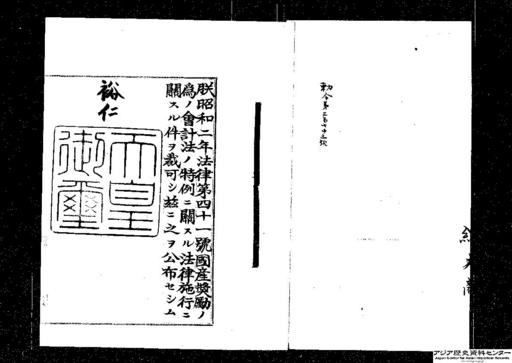 勅令第二百七十三號
朕昭和二年法律第四十一號國産奬勵ノ
爲ノ會計法ノ特例ニ關スル法律施行ニ
關スル件ヲ裁可シ茲ニ之ヲ公布セシム
裕仁
天皇御璽
アジア歴史資料センター
Japan Center for Asian Historical Records